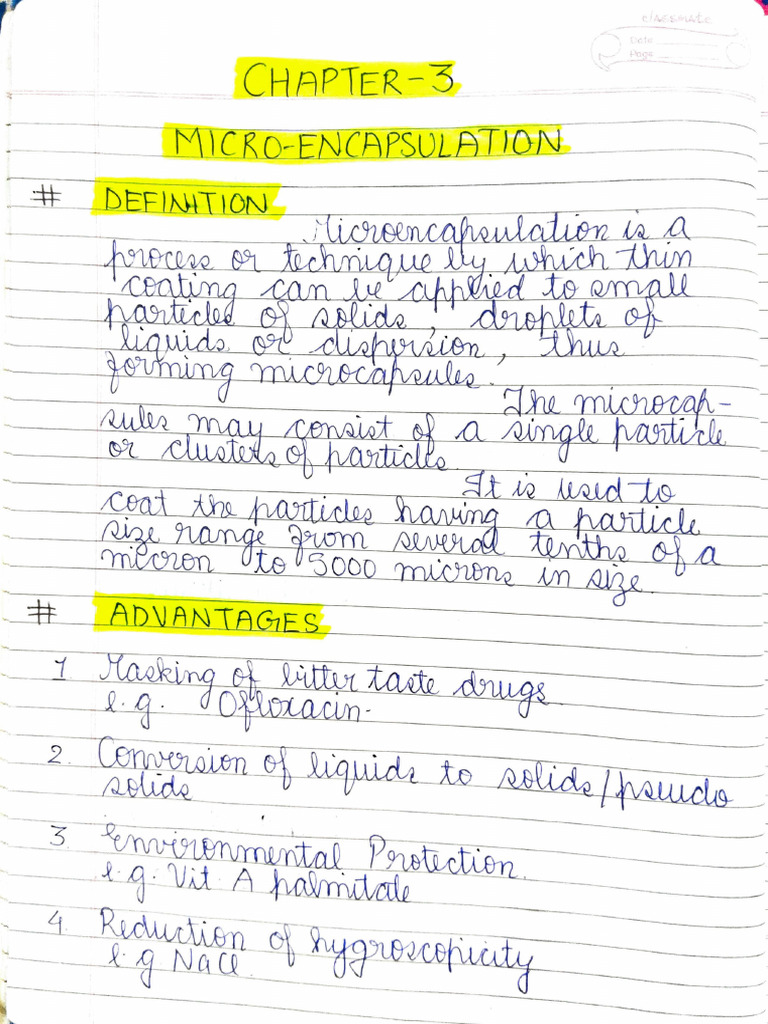 classmate
Date
Page
CHAPTER-3
MICRO-ENCAPSULATION
# DEFINITION
Microencapsulation is a
process or technique by which thin
coating can be applied to small
particles of solids, droplets of
liquids or dispersion, thus
forming microcapsules.
The microcap-
sules may consist of a single particle
or clusters of particles.
It is used to
coat the particles having a particle
size range from several tenths of a
micron to 5000 microns in size.
# ADVANTAGES
1 Masking of bitter taste drugs
e.g. Ofloxacin.
2. Conversion of liquids to solids/pseudo
solids
3 Environmental Protection.
e.g. Vit A palmitate
4. Reduction of hygroscopicity
e.g NaCl.